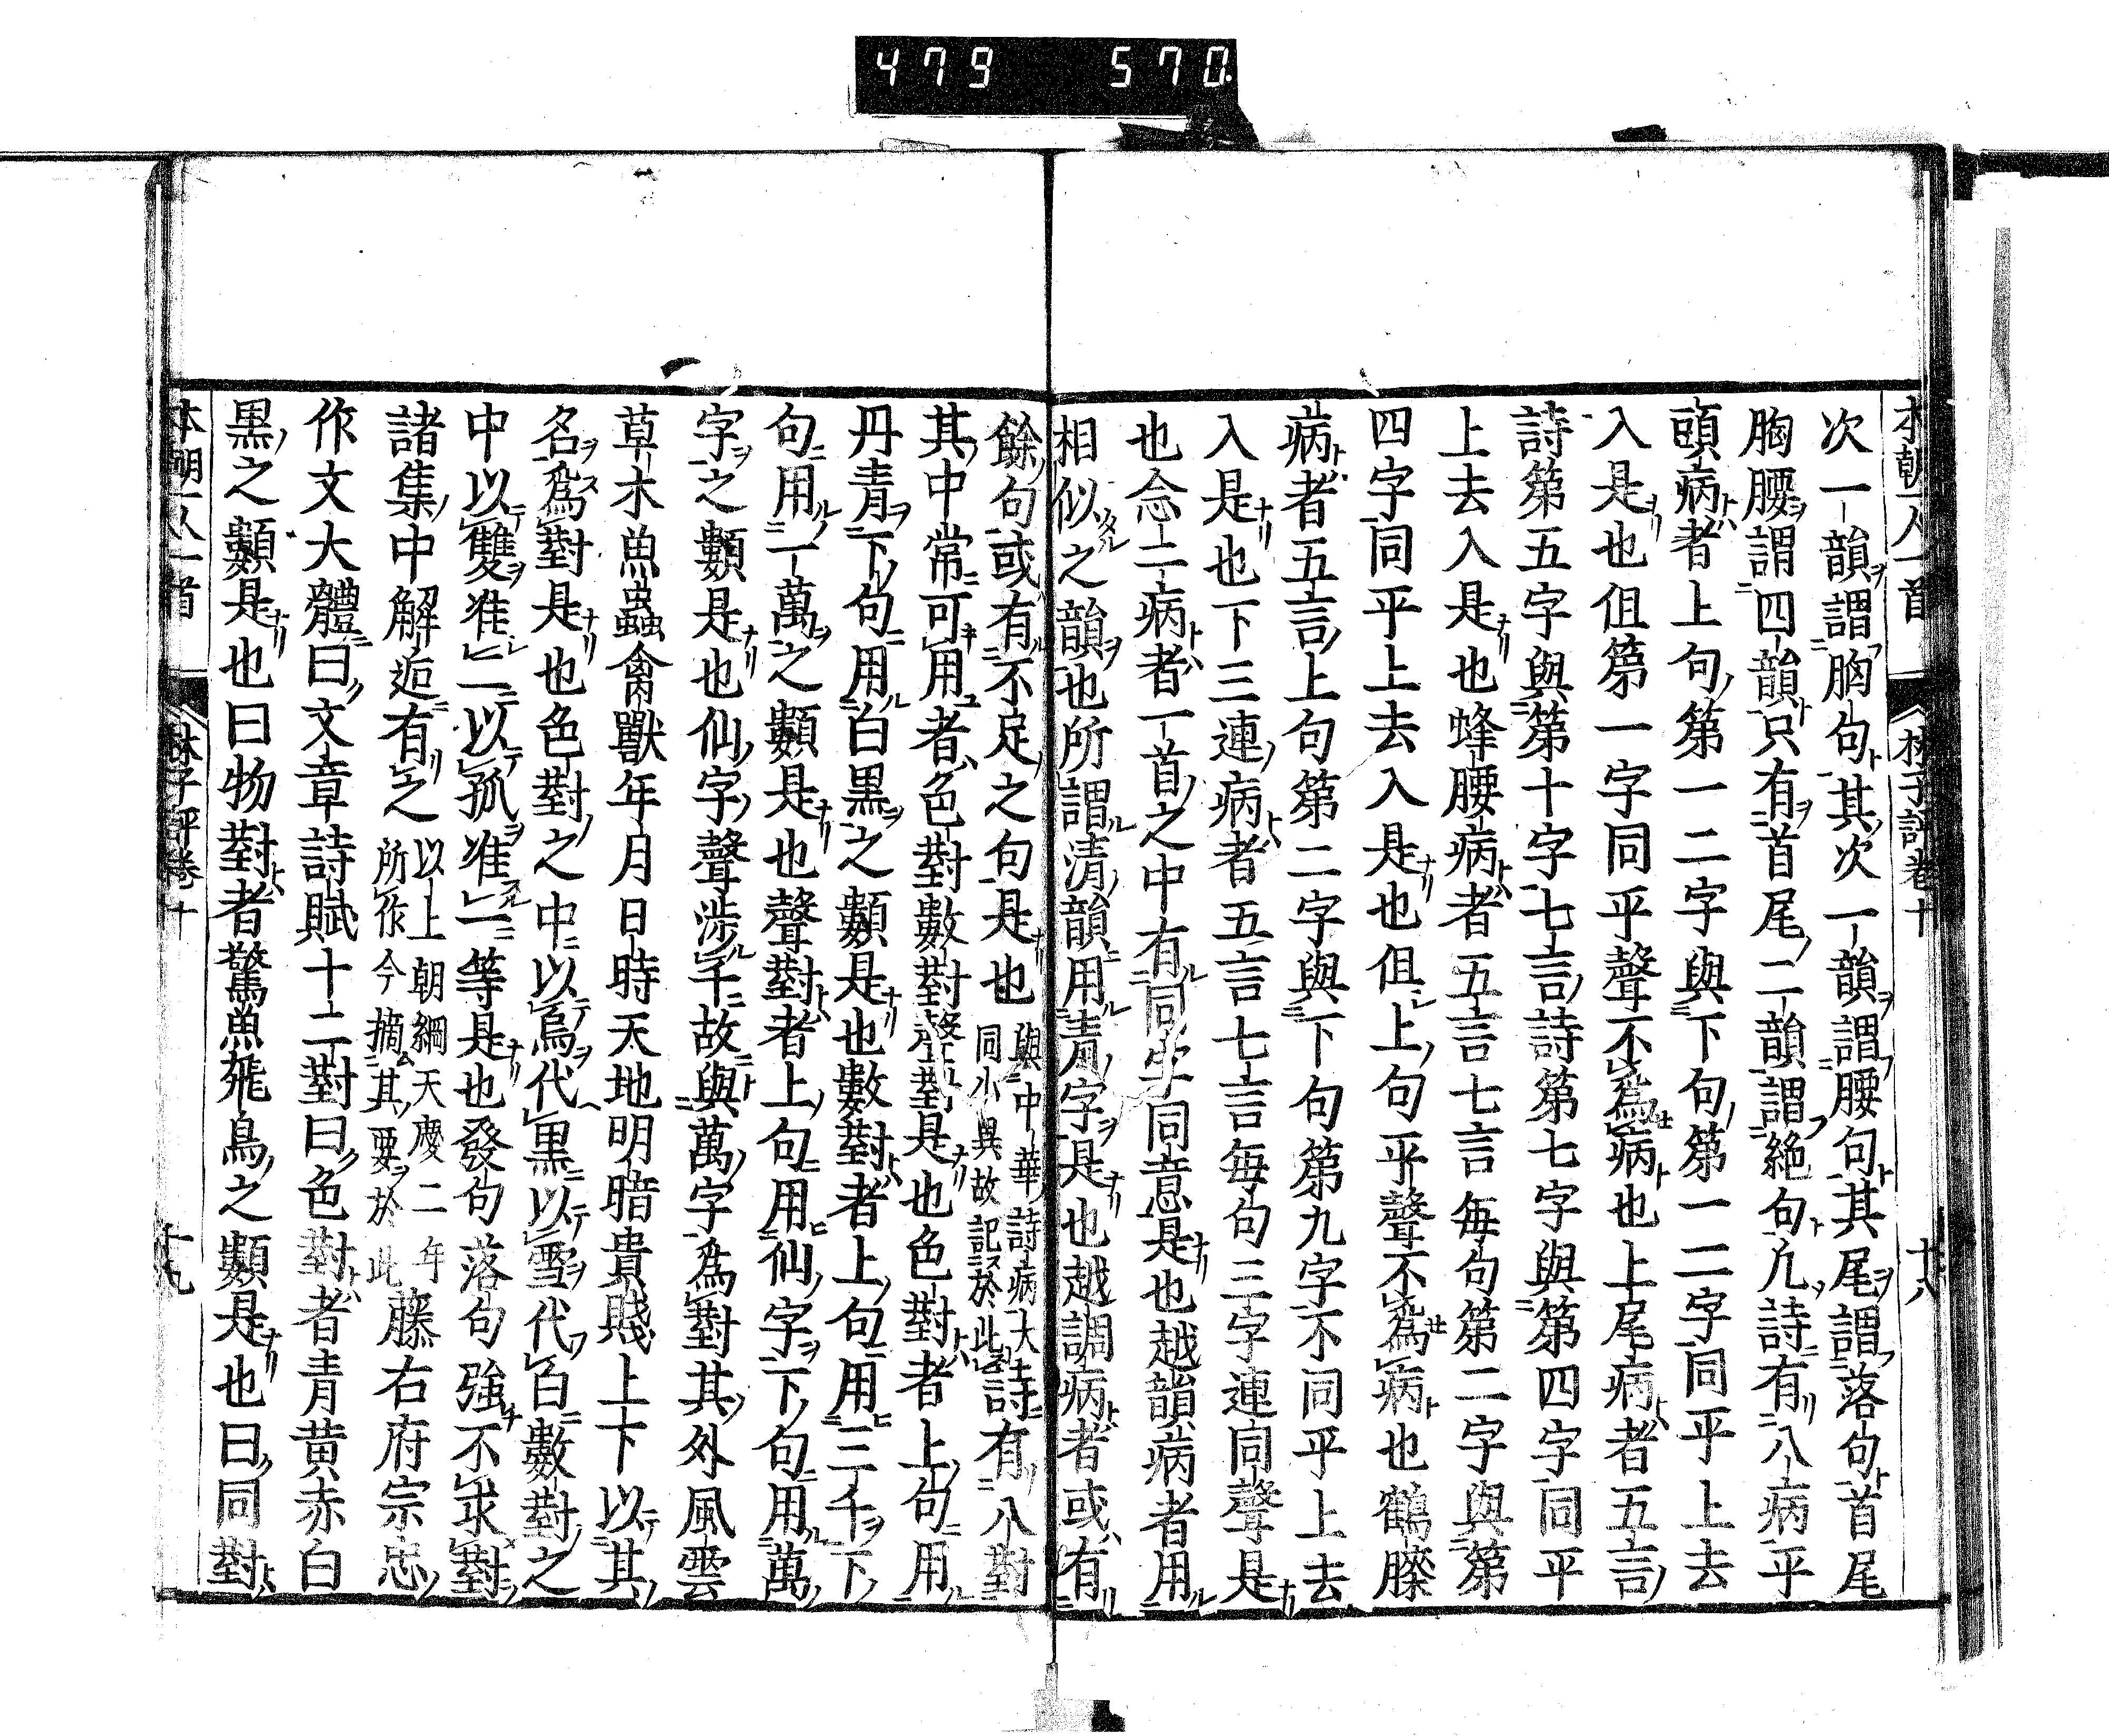 479 570
本朝一人一首 林子評卷十 十八
次一韻謂胸句其次一韻謂腰句其尾謂落句首尾
胸腰謂四韻只有首尾二韻謂絶句凡詩有八病平
頭病者上句第一二字與下句第一二字同平上去
入是也但第一字同平聲不爲病也上尾病者五言
詩第五字與第十字七言詩第七字與第四字同平
上去入是也蜂腰病者五言七言每句第二字與第
四字同平上去入是也但上句平聲不爲病也鶴膝
病者五言上句第二字與下句第九字不同平上去
入是也下三連病者五言七言每句三字連同聲是
也念二病者一首之中有同字同意是也越韻病者用
相似之韻也所謂清韻用青字是也越調病者或有
餘句或有不足之句是也與中華詩病大
同小異故記於此詩有八對
其中常可用者色對數對聲對是也色對者上句用
丹青下句用白黑之類是也數對者上句用三千下
句用一萬之類是也聲對者上句用仙字下句用萬
字之類是也仙字聲渉千故與萬字爲對其外風雲
草木魚蟲禽獸年月日時天地明暗貴賤上下以其
名爲對是也色對之中以烏代黑以雪代白數對之
中以雙准二以孤准一等是也發句落句強不求對
諸集中解逅有之以上朝綱天慶二年
所作今摘其要於此藤右府宗忠
作文大體曰文章詩賦十二對曰色對者青黄赤白
黒之類是也曰物對者驚魚飛鳥之類是也曰同對
本朝一人一首 林子評卷十 十九